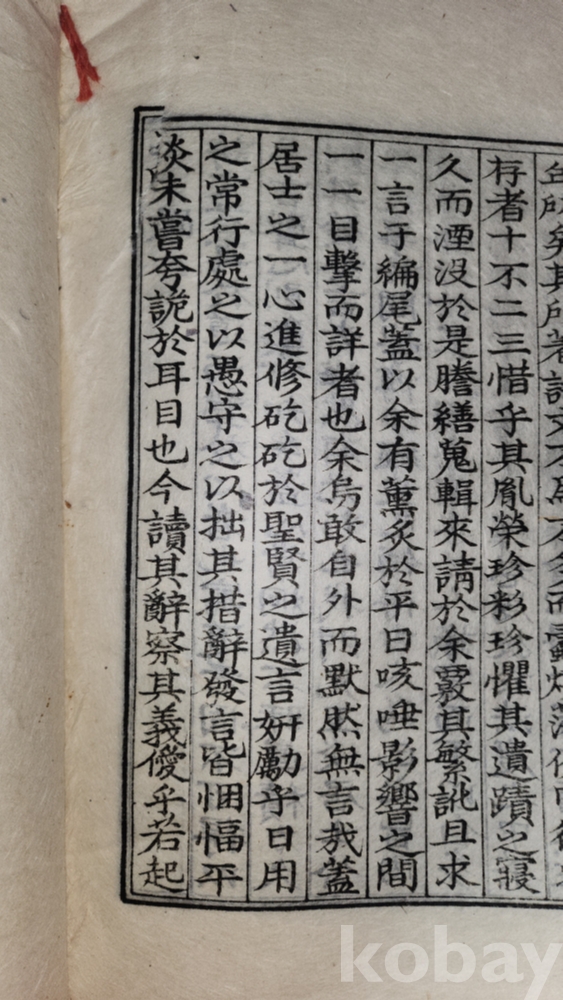 矣其所著詩文不爲不多而
存者十不二三惜乎其胤榮珍彩珍懼其遺蹟之寢
久而湮没於是謄繕蒐輯來請於余覈其繁訛且求
一言于編尾蓋以余有薰炙於平日咳唾影響之間
一一目擊而詳者也余烏敢自外而默然無言哉蓋
居士之一心進修矻矻於聖賢之遺言姸勵乎日用
之常行處之以愚守之以拙其措辭發言皆悃愊平
淡未嘗夸詭於耳目也今讀其辭察其義僾乎若起
kobay